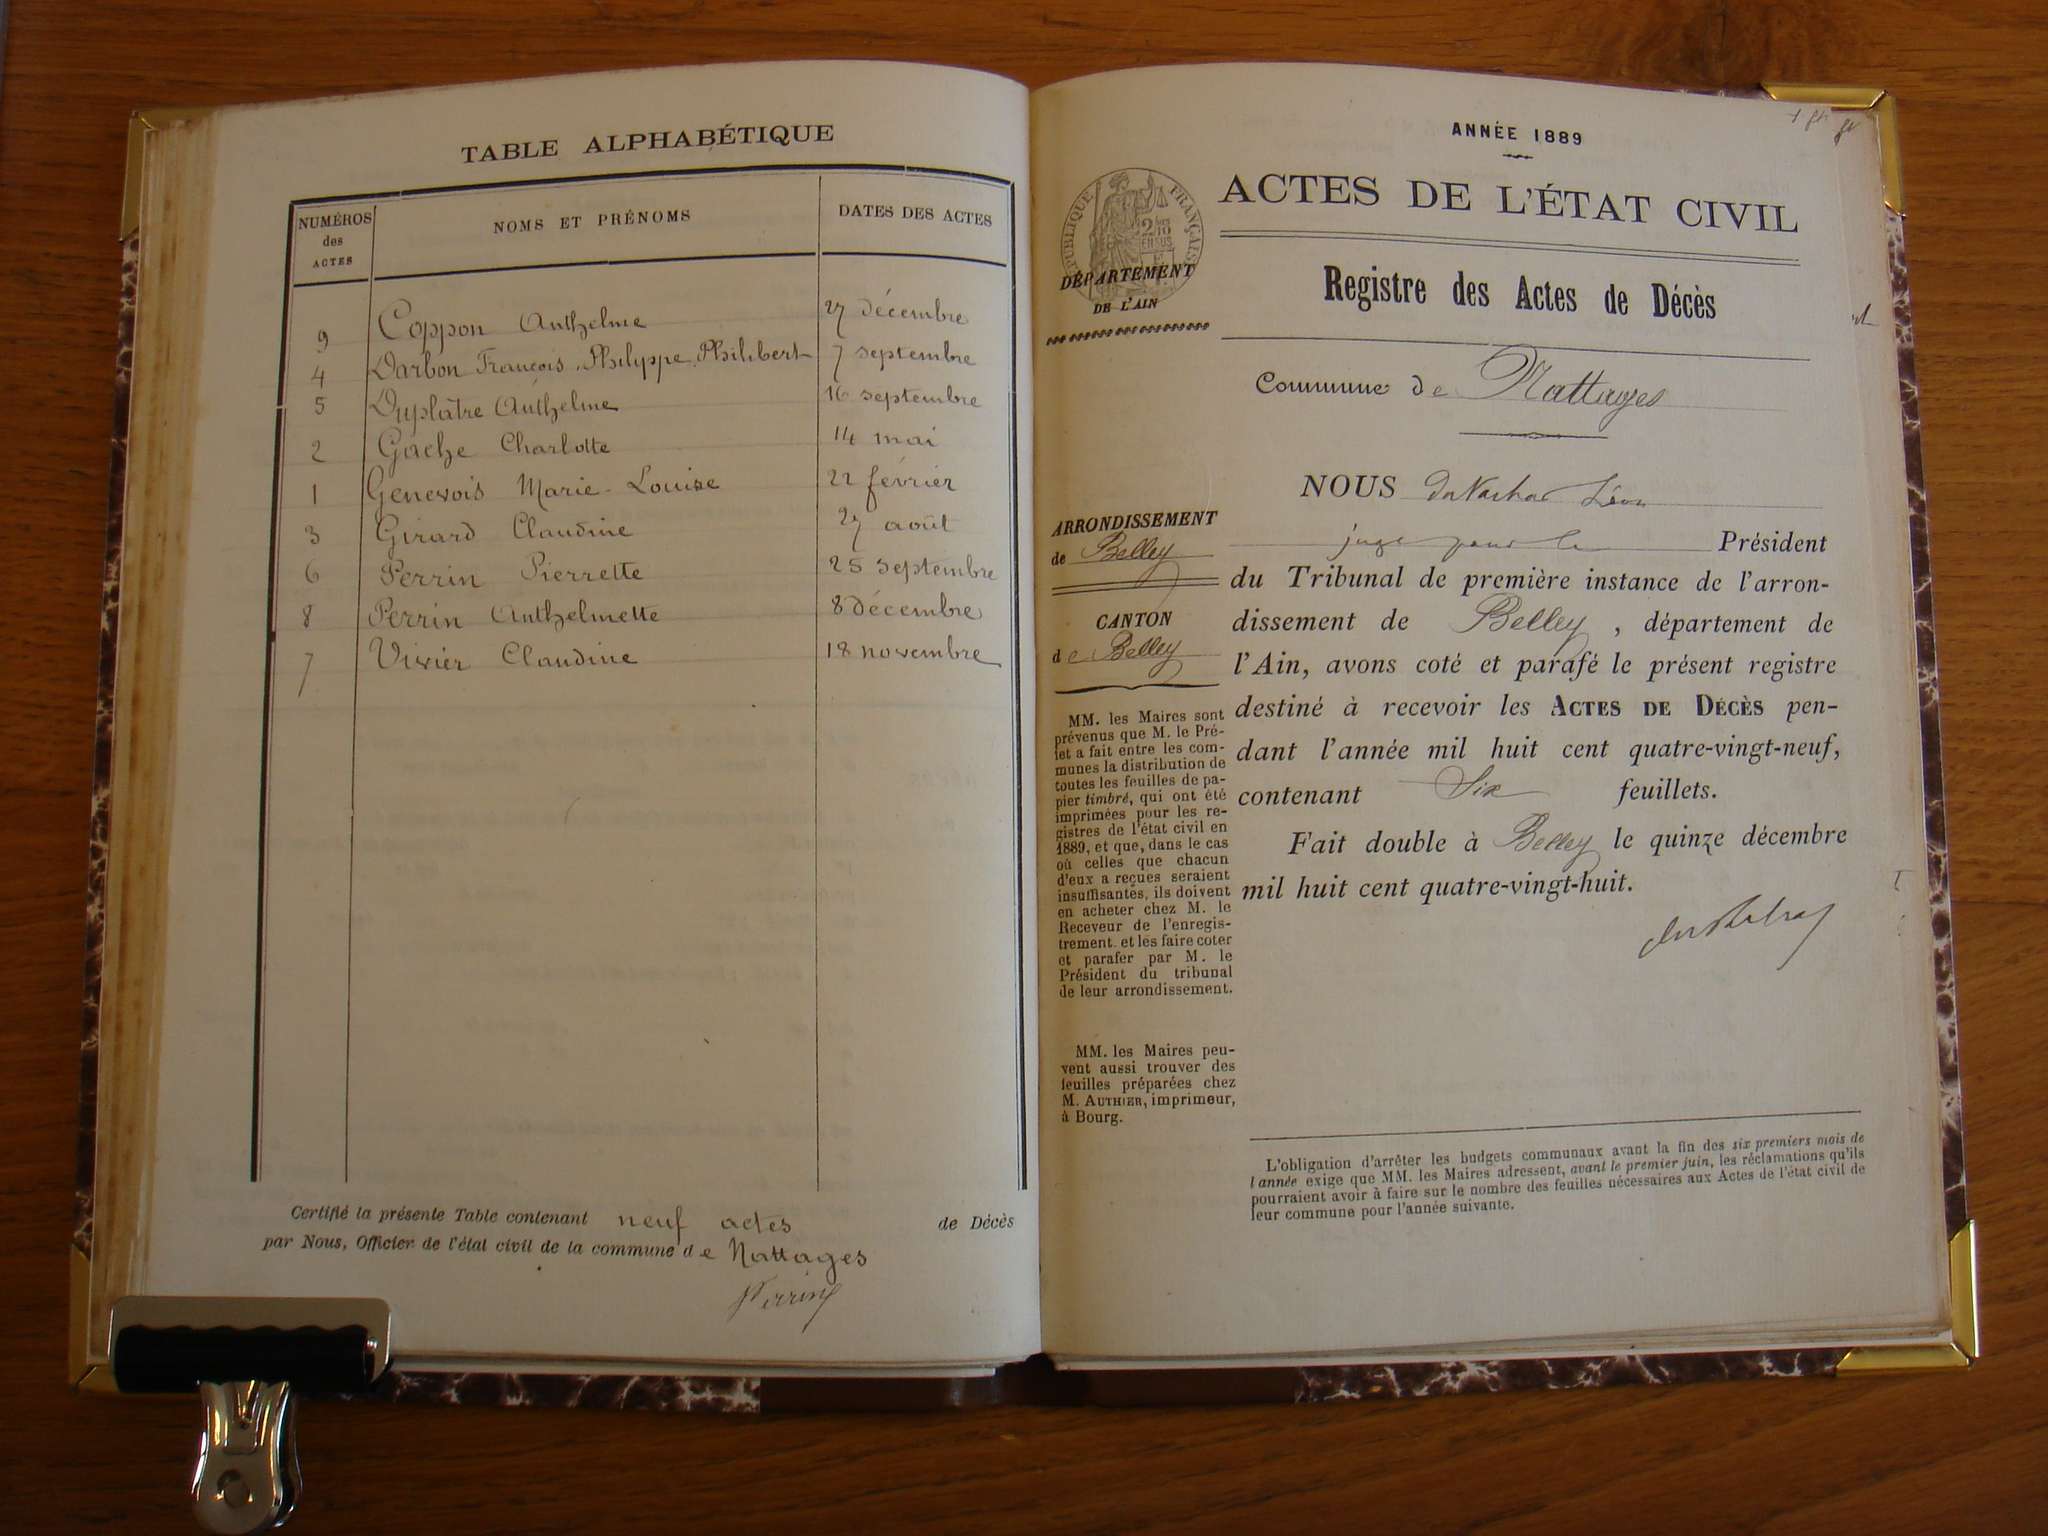 TABLE ALPHABÉTIQUE
NUMÉROS des ACTES
NOMS ET PRÉNOMS
DATES DES ACTES
9 Coppon Anthelme 27 décembre
4 Darbon François, Philyppe, Philibert 7 septembre
5 Duplâtre Anthelme 16 septembre
2 Gache Charlotte 14 mai
1 Genevois Marie-Louise 22 février
3 Girard Claudine 27 août
6 Perrin Pierrette 25 septembre
8 Perrin Anthelmette 8 décembre
7 Vivier Claudine 18 novembre
Certifié la présente Table contenant neuf actes de Décès
par Nous, Officier de l'état civil de la commune de Nattages
Perrin
ANNÉE 1889
RÉPUBLIQUE FRANÇAISE
ACTES DE L'ÉTAT CIVIL
DÉPARTEMENT
DE L'AIN
Registre des Actes de Décès
Commune de Nattages
ARRONDISSEMENT
de Belley
CANTON
de Belley
MM. les Maires sont
prévenus que M. le Pré-
fet a fait entre les com-
munes la distribution de
toutes les feuilles de pa-
pier timbré, qui ont été
imprimées pour les re-
gistres de l'état civil en
1889, et que, dans le cas
où celles que chacun
d'eux a reçues seraient
insuffisantes, ils doivent
en acheter chez M. le
Receveur de l'enregis-
trement. et les faire coter
et parafer par M. le
Président du tribunal
de leur arrondissement.
MM. les Maires peu-
vent aussi trouver des
feuilles préparées chez
M. AUTHIER, imprimeur,
à Bourg.
NOUS Léon
juge pour le Président
du Tribunal de première instance de l'arron-
dissement de Belley, département de
l'Ain, avons coté et parafé le présent registre
destiné à recevoir les ACTES DE DÉCÈS pen-
dant l'année mil huit cent quatre-vingt-neuf,
contenant Six feuillets.
Fait double à Belley le quinze décembre
mil huit cent quatre-vingt-huit.
L'obligation d'arrêter les budgets communaux avant la fin des six premiers mois de
l'année exige que MM. les Maires adressent, avant le premier juin, les réclamations qu'ils
pourraient avoir à faire sur le nombre des feuilles nécessaires aux Actes de l'état civil de
leur commune pour l'année suivante.